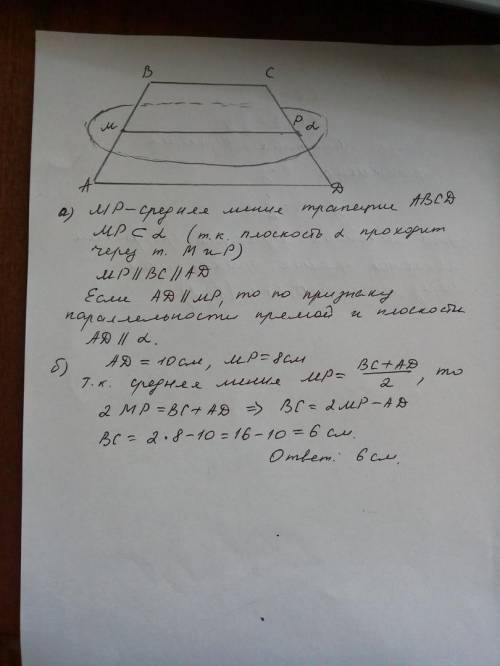 B C
M P α
A D
а) MP – средняя линия трапеции ABCD
MP ⊂ α (т.к. плоскость α проходит
через т. M и P)
MP || BC || AD
Если AD || MP, то по признаку
параллельности прямой и плоскости
AD || α.
б) AD = 10 см, MP = 8 см
т.к. средняя линия MP = (BC + AD)/2, то
2 MP = BC + AD ⇒ BC = 2 MP – AD
BC = 2 • 8 – 10 = 16 – 10 = 6 см.
Ответ: 6 см.